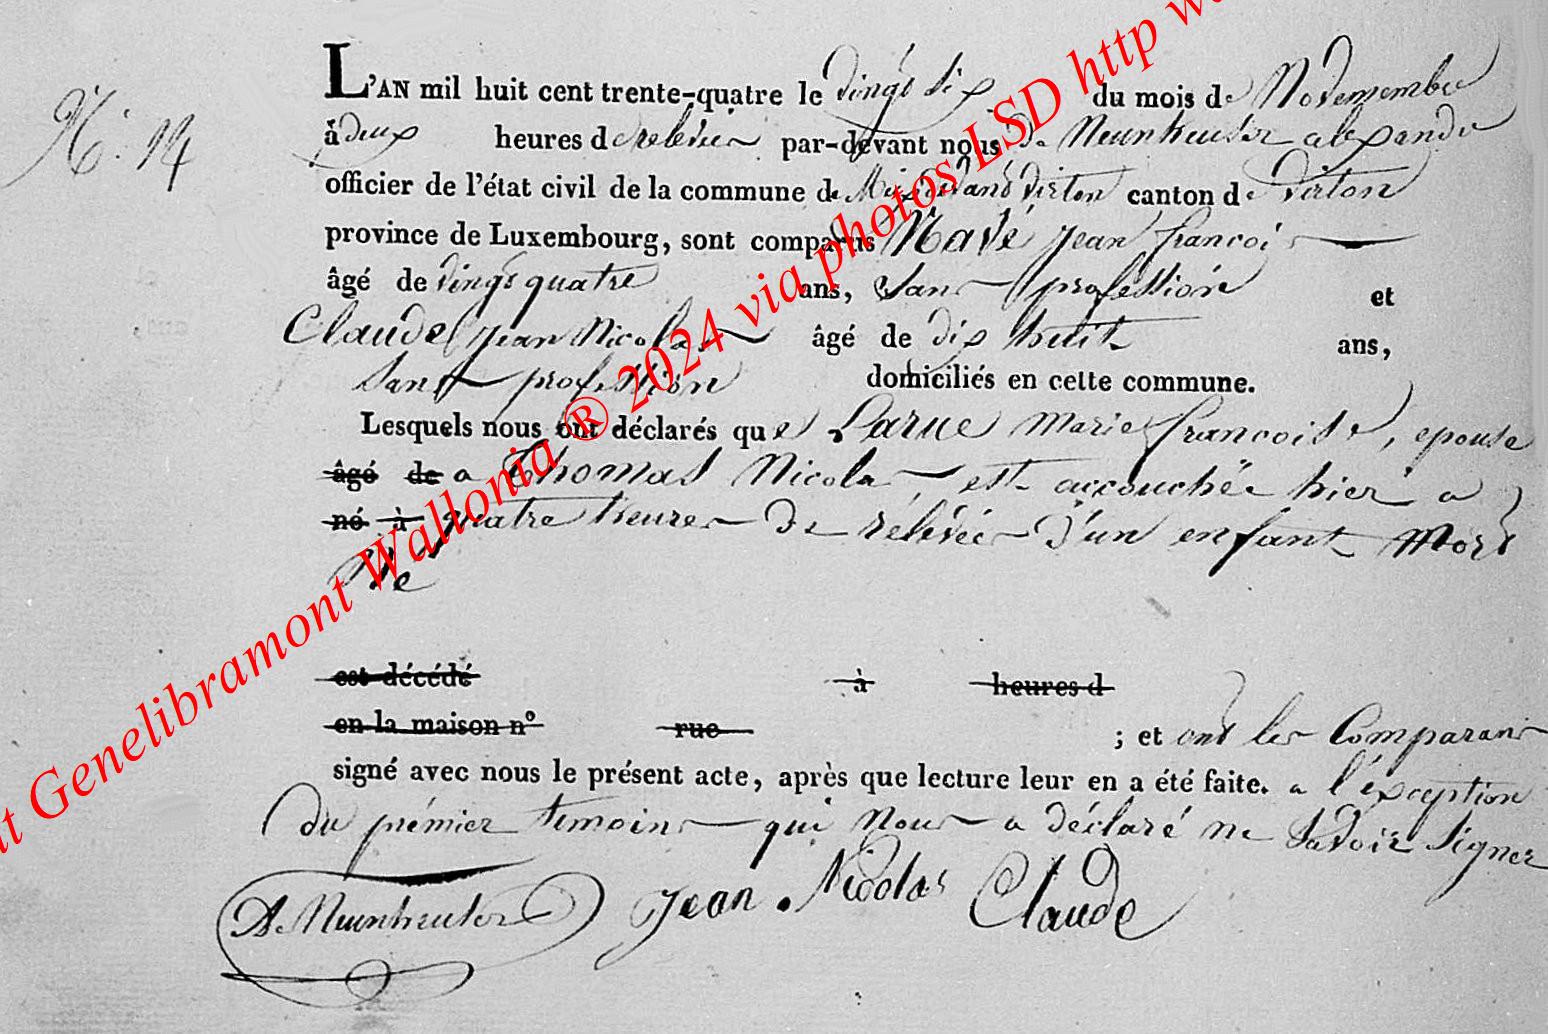 N.° 14
L'AN mil huit cent trente-quatre le vingt six du mois de Novembre
à deux heures de relevée par-devant nous De Neunheuser alexandre
officier de l'état civil de la commune de Mix devant Virton canton de Virton
province de Luxembourg, sont comparus Mavé Jean françois
âgé de vingt quatre ans, sans profession et
Claude Jean Nicolas âgé de dix huit ans,
sans profession domiciliés en cette commune.
Lesquels nous ont déclarés que Larue Marie françoise, epouse
âgé de a Thomas Nicolas est accouchée hier a
né à quatre heures de relevée d'un enfant mort
Né
est décédé à heures d
en la maison n° rue ; et ont les Comparans
signé avec nous le présent acte, après que lecture leur en a été faite. a l'exception
du prémier temoins qui nous a déclaré ne savoir signer
De Neunheuser Jean Nicolas Claude
at Genelibramont Wallonia ® 2024 via photos LSD http w